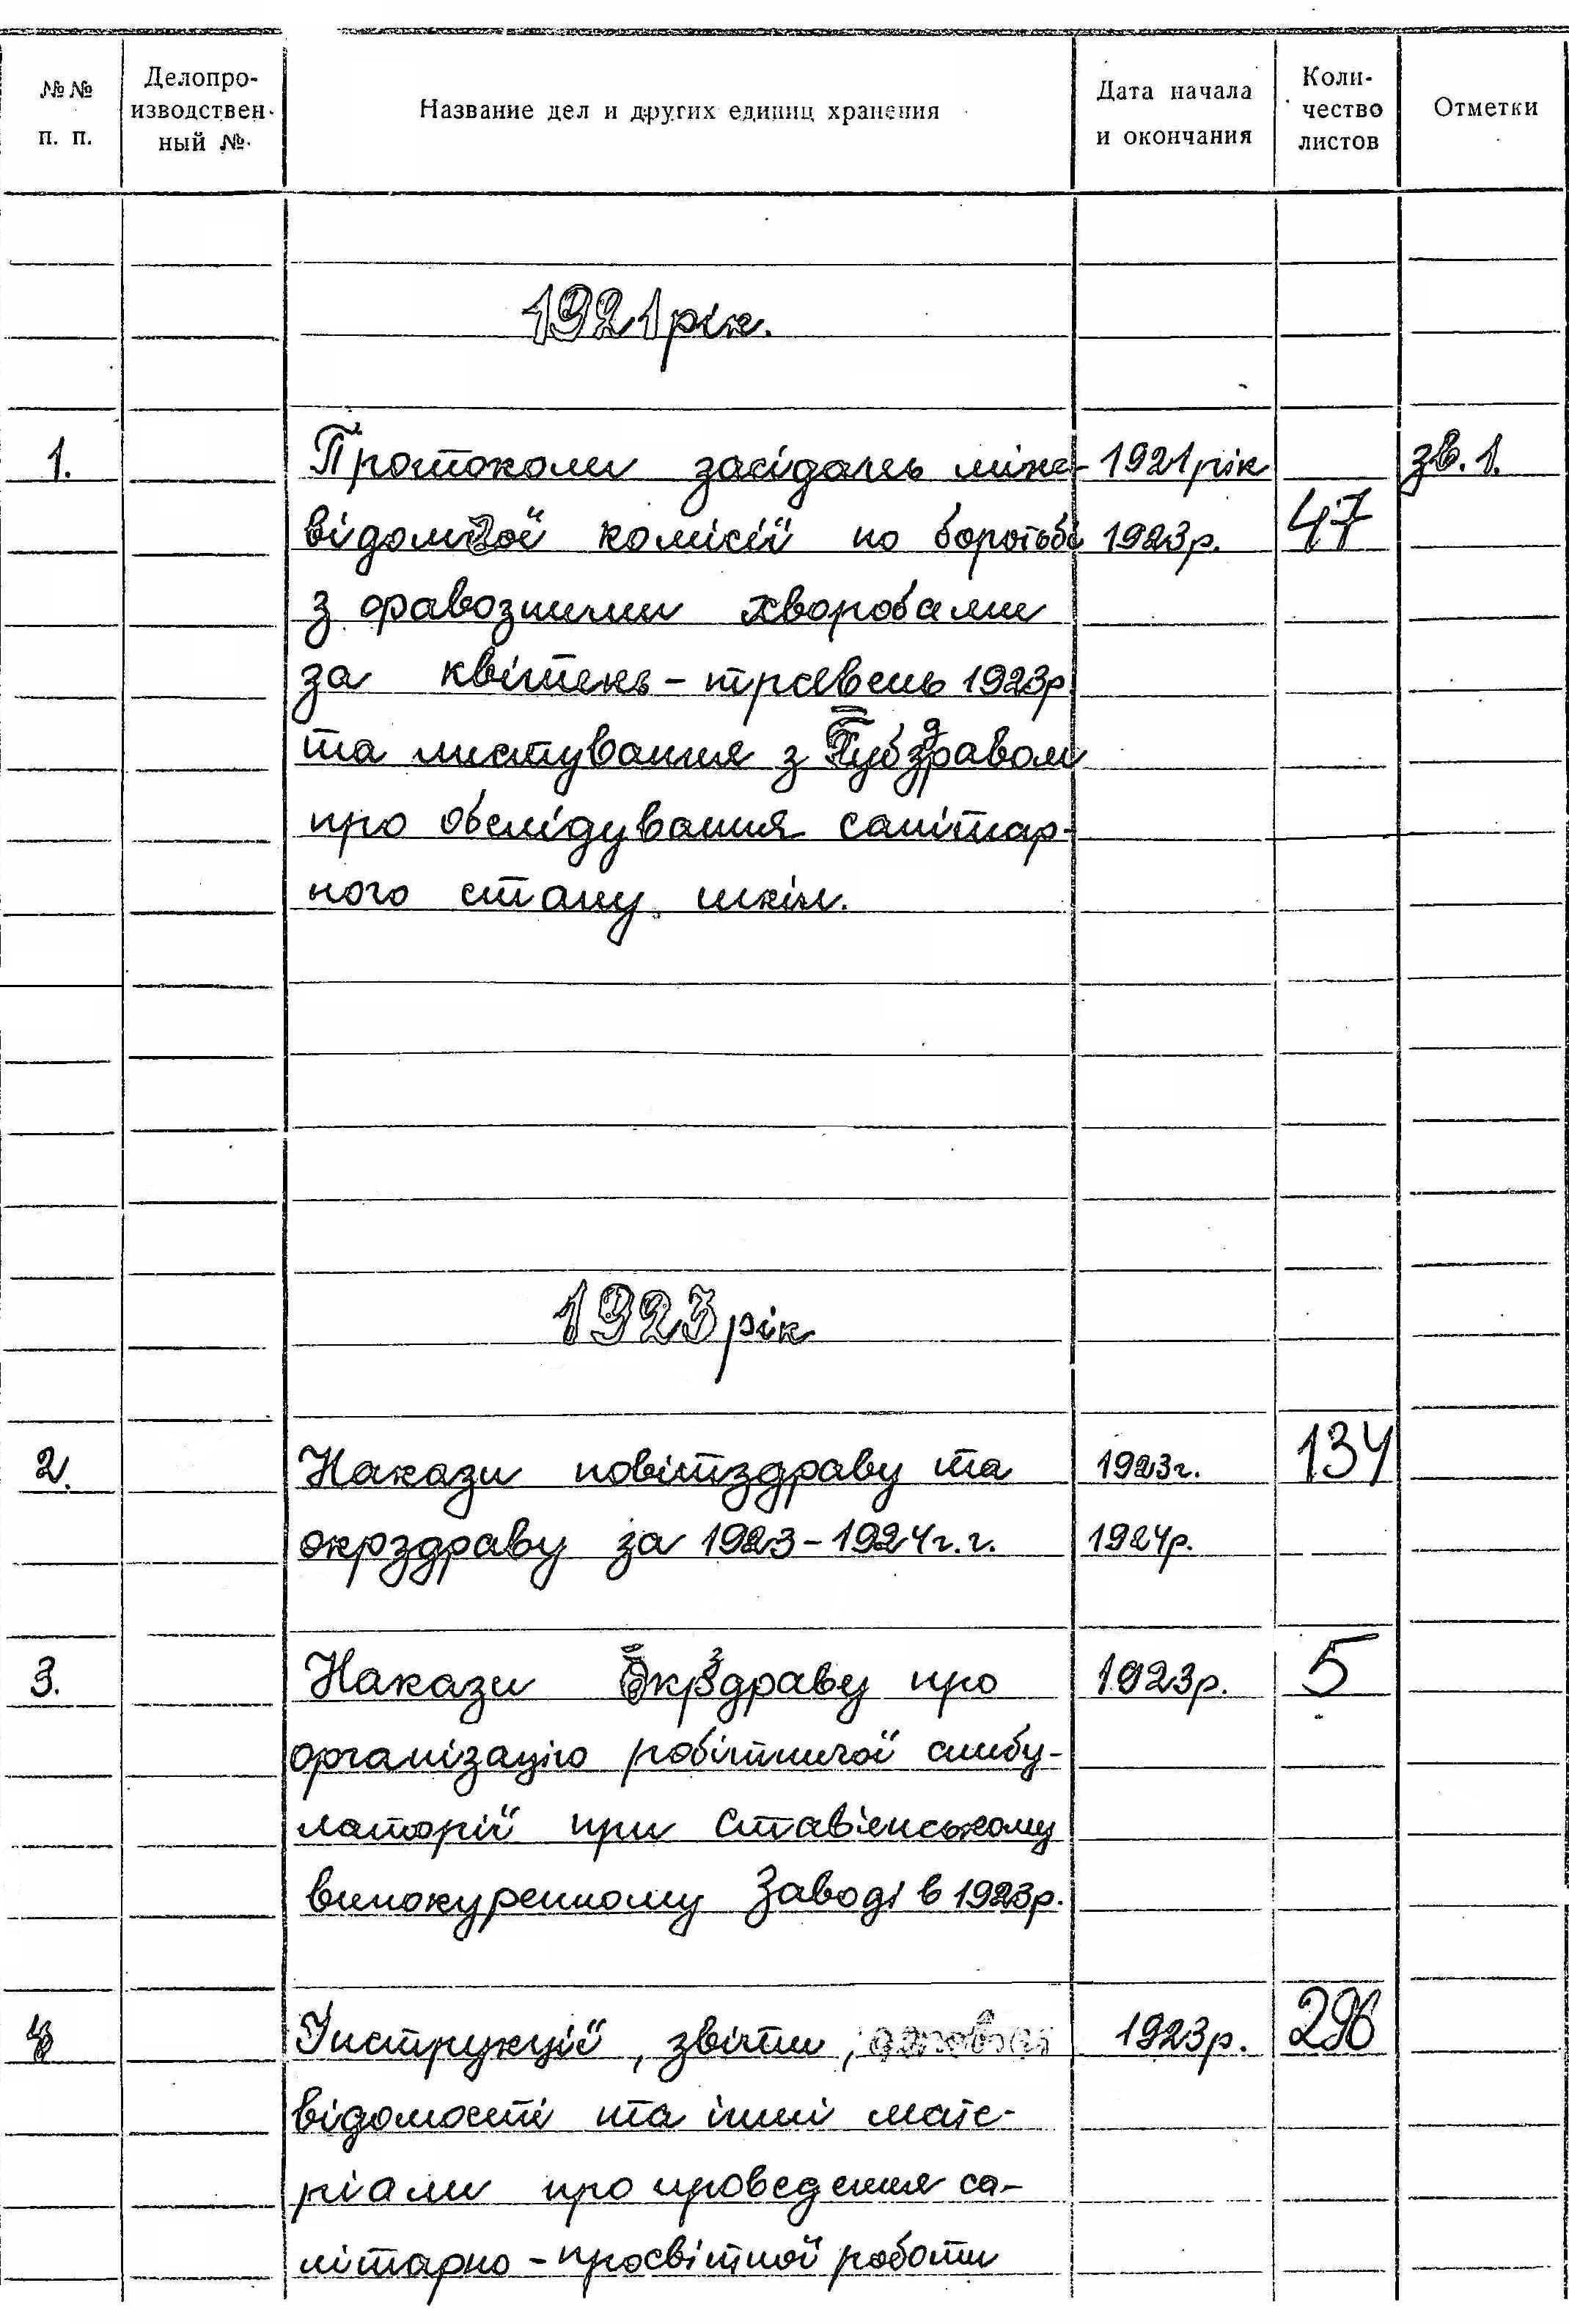 №№ п. п. Делопро-изводствен-ный № Название дел и других единиц хранения Дата начала и окончания Коли-чество листов Отметки
1921 рік.
1. Протоколи засідань між- 1921 рік зв. 1.
відомчої комісії по боротьбі 1923р. 47
з фавозними хворобами
за квітень - травень 1923р
та листування з Губздравом
про обслідування санітар-
ного стану шкіл.
1923 рік
2. Накази повітздраву та 1923г. 134
окрздраву за 1923-1924г.г. 1924р.
3. Накази Окрздраву про 1923р. 5
організацію робітничої амбу-
латорії при Ставіенському
винокуренному заводі в 1923р.
4 Інструкції, звіти, 1923р. 296
відомості та інші мате-
ріали про проведення са-
нітарно - просвітної роботи